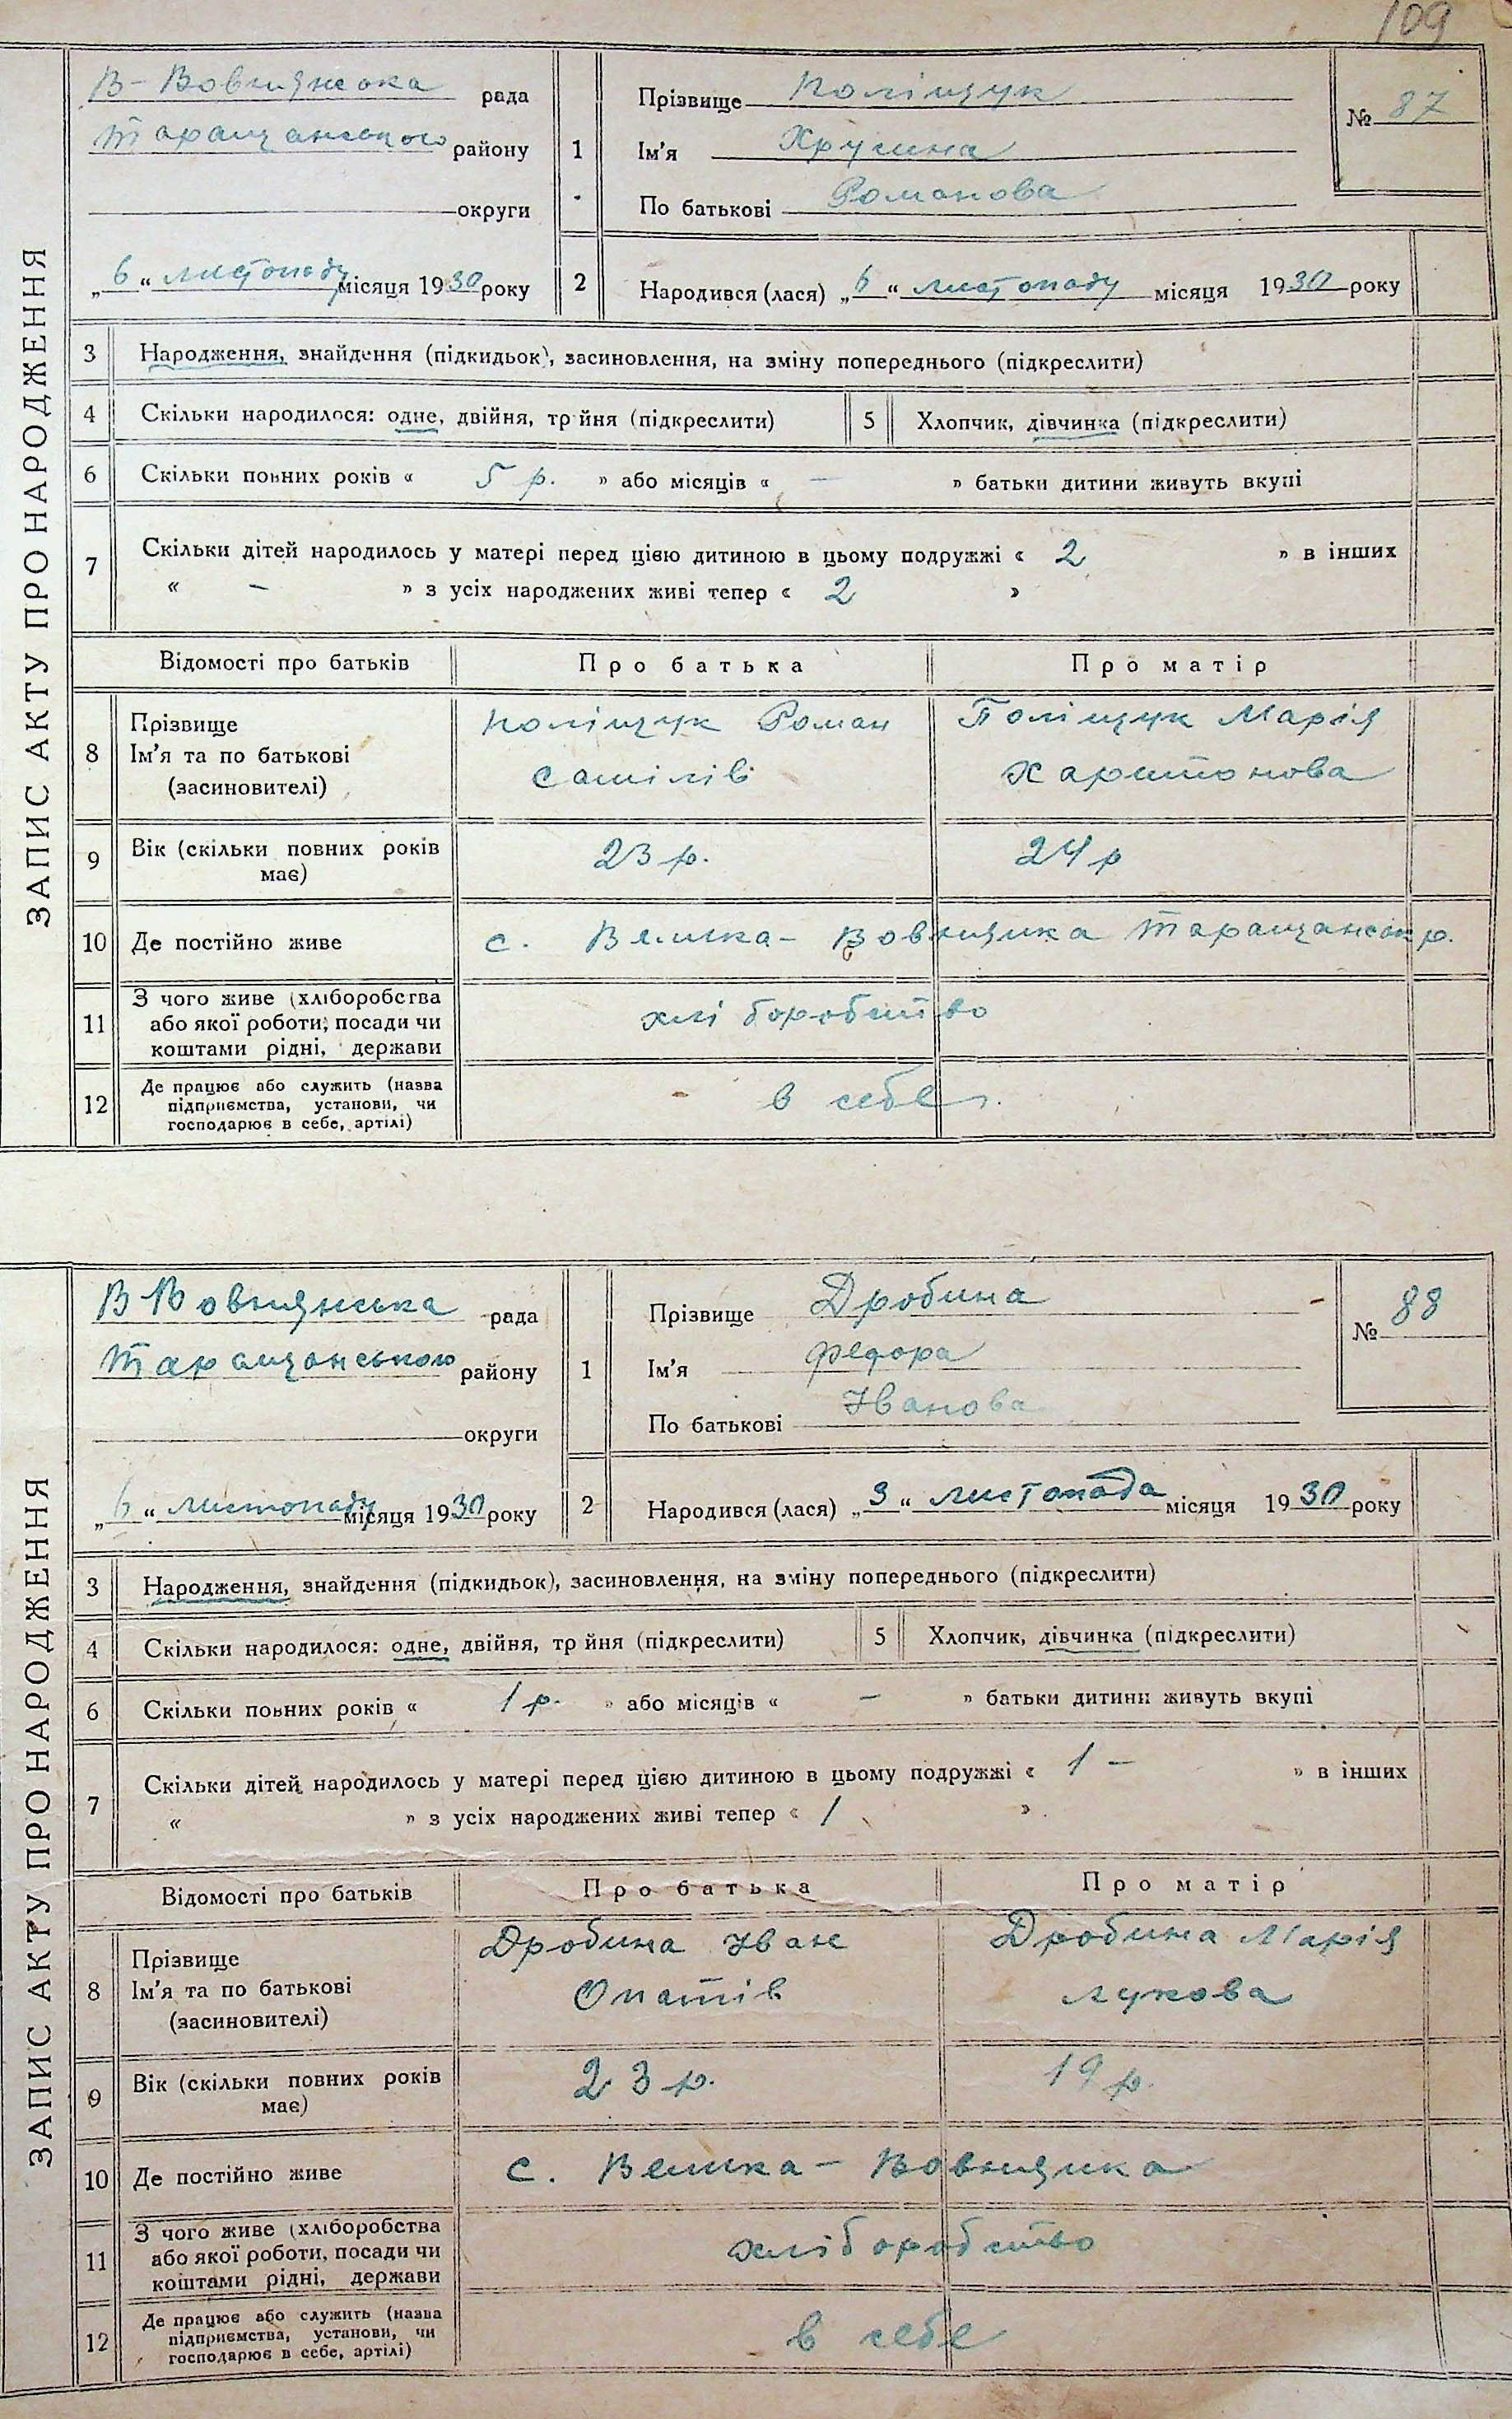 109
ЗАПИС АКТУ ПРО НАРОДЖЕННЯ
В-Вовнянська рада
Таращанського району
округи
„6“ листопаду місяця 1930 року
1
Прізвище Поліщук
Ім'я Хрусина
По батькові Романова
№ 87
2
Народився (лася) „6“ листопаду місяця 1930 року
3 Народження, знайдення (підкидьок), засиновлення, на зміну попереднього (підкреслити)
4 Скільки народилося: одне, двійня, трійня (підкреслити) 5 Хлопчик, дівчинка (підкреслити)
6 Скільки повних років « 5 р. » або місяців « – » батьки дитини живуть вкупі
7 Скільки дітей народилось у матері перед цією дитиною в цьому подружжі « 2 » в інших
« – » з усіх народжених живі тепер « 2 »
Відомості про батьків Про батька Про матір
8 Прізвище Ім'я та по батькові (засновителі)
Поліщук Роман Поліщук Марія
Харитонова
9 Вік (скільки повних років має) 23 р. 24 р
10 Де постійно живе с. Велика-Вовнянка Таращанськ р.
11 З чого живе (хліборобства або якої роботи, посади чи коштами рідні, держави хліборобство
12 Де працює або служить (назва підприємства, установи, чи господарює в себе, артілі) в себе
ЗАПИС АКТУ ПРО НАРОДЖЕННЯ
В Вовнянська рада
Таращанського району
округи
„6“ листопаду місяця 1930 року
1
Прізвище Дробина
Ім'я Федора
По батькові Іванова
№ 88
2
Народився (лася) „3“ листопада місяця 1930 року
3 Народження, знайдення (підкидьок), засиновлення, на зміну попереднього (підкреслити)
4 Скільки народилося: одне, двійня, трійня (підкреслити) 5 Хлопчик, дівчинка (підкреслити)
6 Скільки повних років « 1 р. » або місяців « – » батьки дитини живуть вкупі
7 Скільки дітей народилось у матері перед цією дитиною в цьому подружжі « 1 – » в інших
« » з усіх народжених живі тепер « 1 »
Відомості про батьків Про батька Про матір
8 Прізвище Ім'я та по батькові (засиновителі)
Дробина Іван Дробина Марія
Опатів Лукова
9 Вік (скільки повних років має) 23 р. 19 р.
10 Де постійно живе с. Велика-Вовнянка
11 З чого живе (хліборобства або якої роботи, посади чи коштами рідні, держави хліборобство
12 Де працює або служить (назва підприємства, установи, чи господарює в себе, артілі) в себе